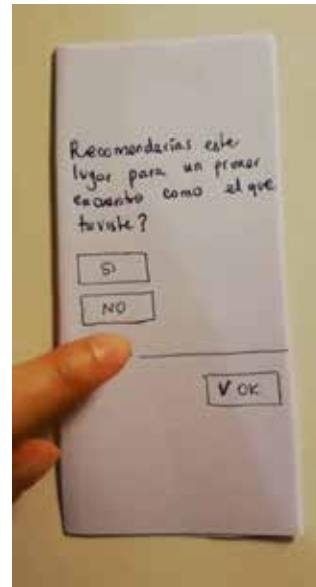 Recomendarías este
lugar para un primer
encuentro como el que
tuviste?
SI
NO
V OK